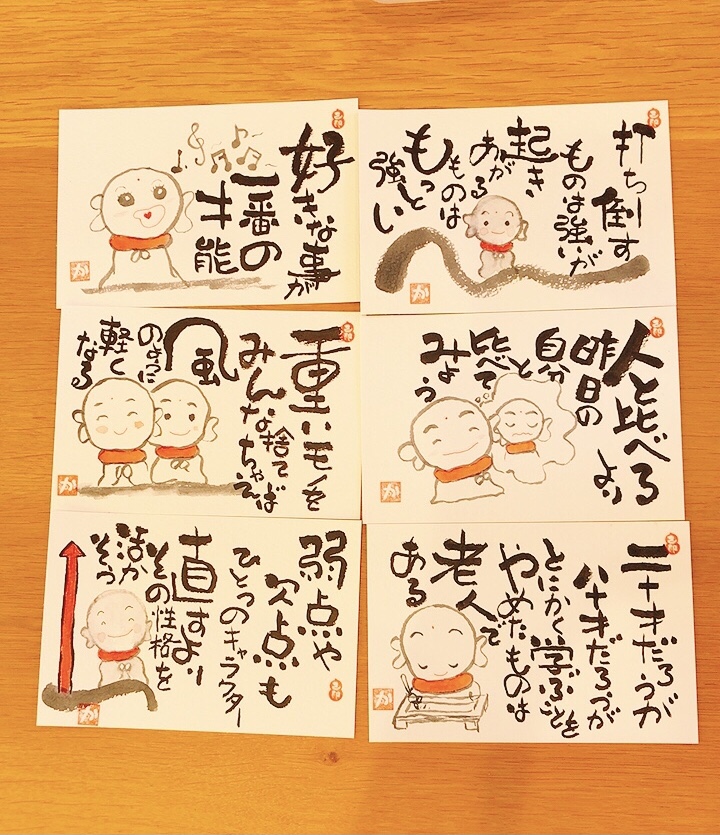 好きな事が
一番の
才能
か
打ち倒す
ものは強いが
起き
あがる
ものは
もっと
強い
か
重いモノを
みんな捨てちゃえば
風
のように
軽く
なる
か
人と比べる
より
昨日の
自分
と
比べて
みよう
か
弱点や
欠点も
ひとつのキャラクター
直すより
その性格を
活か
そう
か
二十才だろうが
八十才だろうが
とにかく学ぶことを
やめたものは
老人で
ある
か